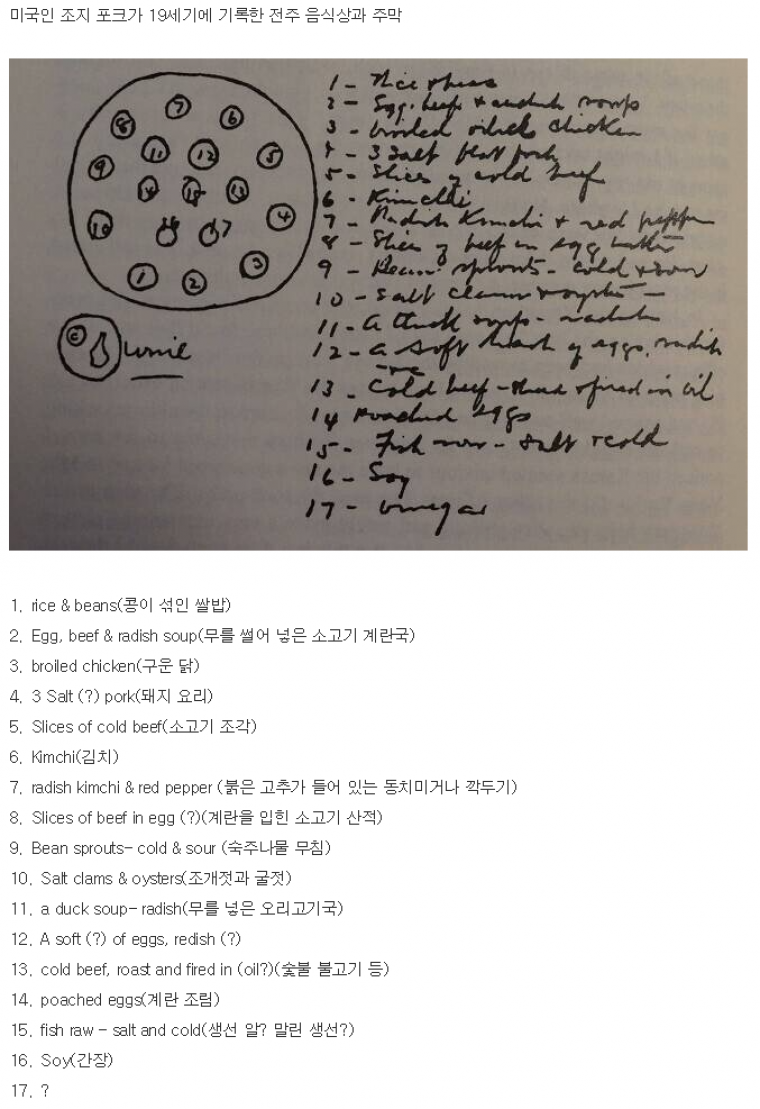 미국인 조지 포크가 19세기에 기록한 전주 음식상과 주막
1 - Rice & beans
2 - Egg, beef & radish soup
3 - broiled chicken
4 - 3 Salt pork
5 - Slices of cold beef
6 - Kimchi
7 - Radish Kimchi & red pepper
8 - Slices of beef in egg
9 - Bean sprouts - cold & sour
10 - Salt clams & oysters -
11 - a duck soup - radish
12 - a soft hash of eggs, radish
13 - Cold beef - & fired in oil
14 Poached eggs
15 - Fish - salt & cold
16 - Soy
17 - Vinegar
7
8 6
11 12 5
9
14 13
10 4
1 2 3
wine
1. rice & beans(콩이 섞인 쌀밥)
2. Egg, beef & radish soup(무를 썰어 넣은 소고기 계란국)
3. broiled chicken(구운 닭)
4. 3 Salt (?) pork(돼지 요리)
5. Slices of cold beef(소고기 조각)
6. Kimchi(김치)
7. radish kimchi & red pepper (붉은 고추가 들어 있는 동치미거나 깍두기)
8. Slices of beef in egg (?)(계란을 입힌 소고기 산적)
9. Bean sprouts- cold & sour (숙주나물 무침)
10. Salt clams & oysters(조개젓과 굴젓)
11. a duck soup- radish(무를 넣은 오리고기국)
12. A soft (?) of eggs, redish (?)
13. cold beef, roast and fired in (oil?)(숯불 불고기 등)
14. poached eggs(계란 조림)
15. fish raw - salt and cold(생선 알? 말린 생선?)
16. Soy(간장)
17. ?